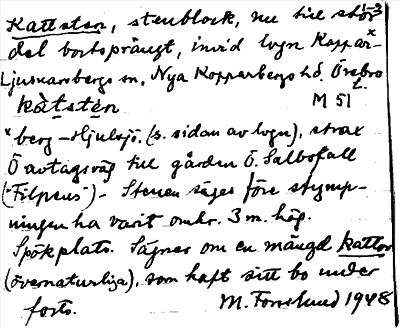 Kattsten, stenblock, nu till stör- 1-3
del bortsprängt, invid lvgn Koppar-x
Ljusnarsbergs sn, Nya Kopparbergs hd, Örebro l.
kàtstén M 51
x berg – Hjulsjö, (s. sidan av lvgn), strax
Ö avtagsväg till gården Ö. Salbofall
("Filpens") – Stenen säges före stymp-
ningen ha varit omkr. 3 m. hög.
Spökplats. Sägner om en mängd kattor
(övernaturliga), som haft sitt bo under
forts. M. Fornlund 1948